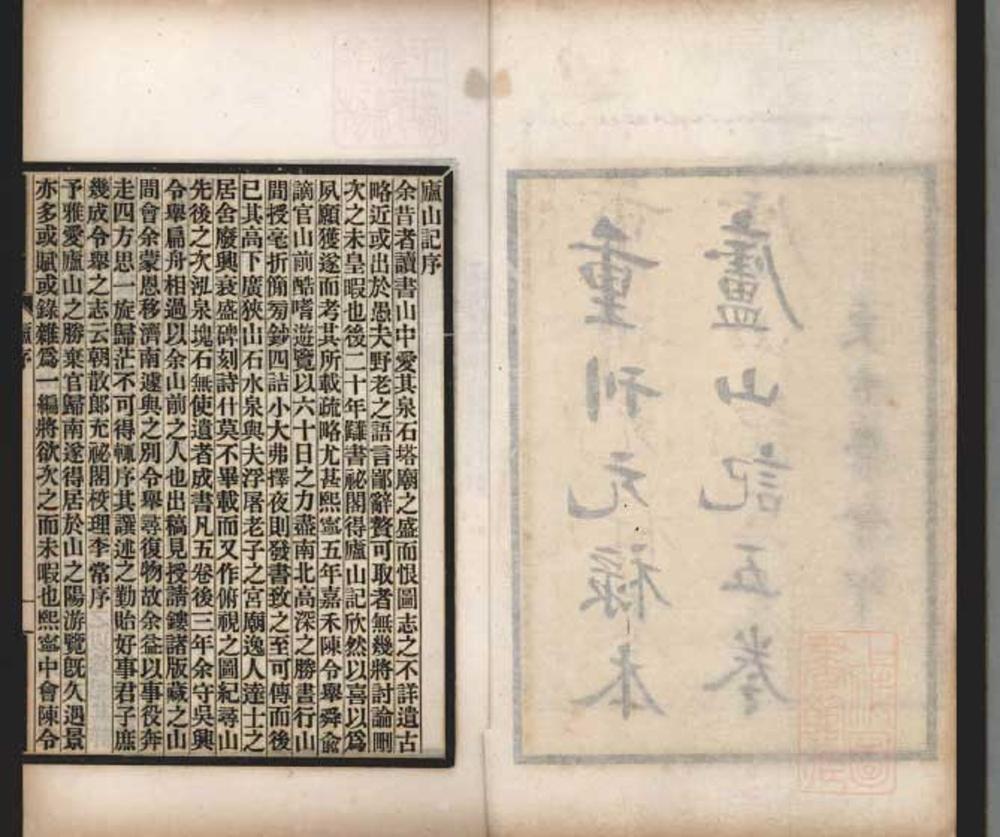 廬山記五卷
重刊元祿本
廬山記序
余昔者讀書山中愛其泉石塔廟之盛而恨圖志之不詳遺古
略近或出於愚夫野老之語言鄙辭贅可取者無幾將討論刪
次之未皇暇也後二十年讎書祕閣得廬山記欣然以喜以爲
夙願獲遂而考其所載疏略尤甚熙寧五年嘉禾陳令舉舜俞
謫官山前酷嗜遊覽以六十日之力盡南北高深之勝晝行山
間授毫折簡旁鈔四詰小大弗擇夜則發書攷之至可傳而後
已其高下廣狹山石水泉與夫浮屠老子之宮廟逸人達士之
居舍廢興衰盛碑刻詩什莫不畢載而又作俯視之圖紀尋山
先後之次泓泉塊石無使遺者成書凡五卷後三年余守吳興
令舉扁舟相過以余山前之人也出稿見授請鏤諸版藏之山
間會余蒙恩移濟南遽與之別令舉尋復物故余益以事役奔
走四方思一旋歸茫不可得輒序其讓述之勤貽好事君子庶
幾成令舉之志云朝散郎充祕閣校理李常序
予雅愛廬山之勝棄官歸南遂得居於山之陽游覽旣久遇景
亦多或賦或錄雜爲一編將欲次之而未暇也熙寧中會陳令
廬序